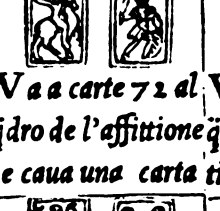 Va a carte 72 al
dro de l'affittione
e caua una carta